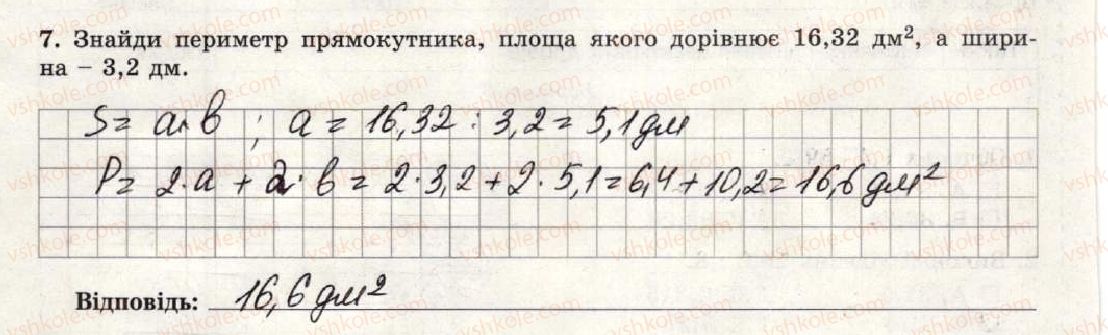 7. Знайди периметр прямокутника, площа якого дорівнює 16,32 дм², а шири-
на – 3,2 дм.
S = a·b ; a = 16,32 : 3,2 = 5,1 дм
P = 2·a + 2·b = 2·3,2 + 2·5,1 = 6,4 + 10,2 = 16,6 дм²
Відповідь: 16,6 дм²